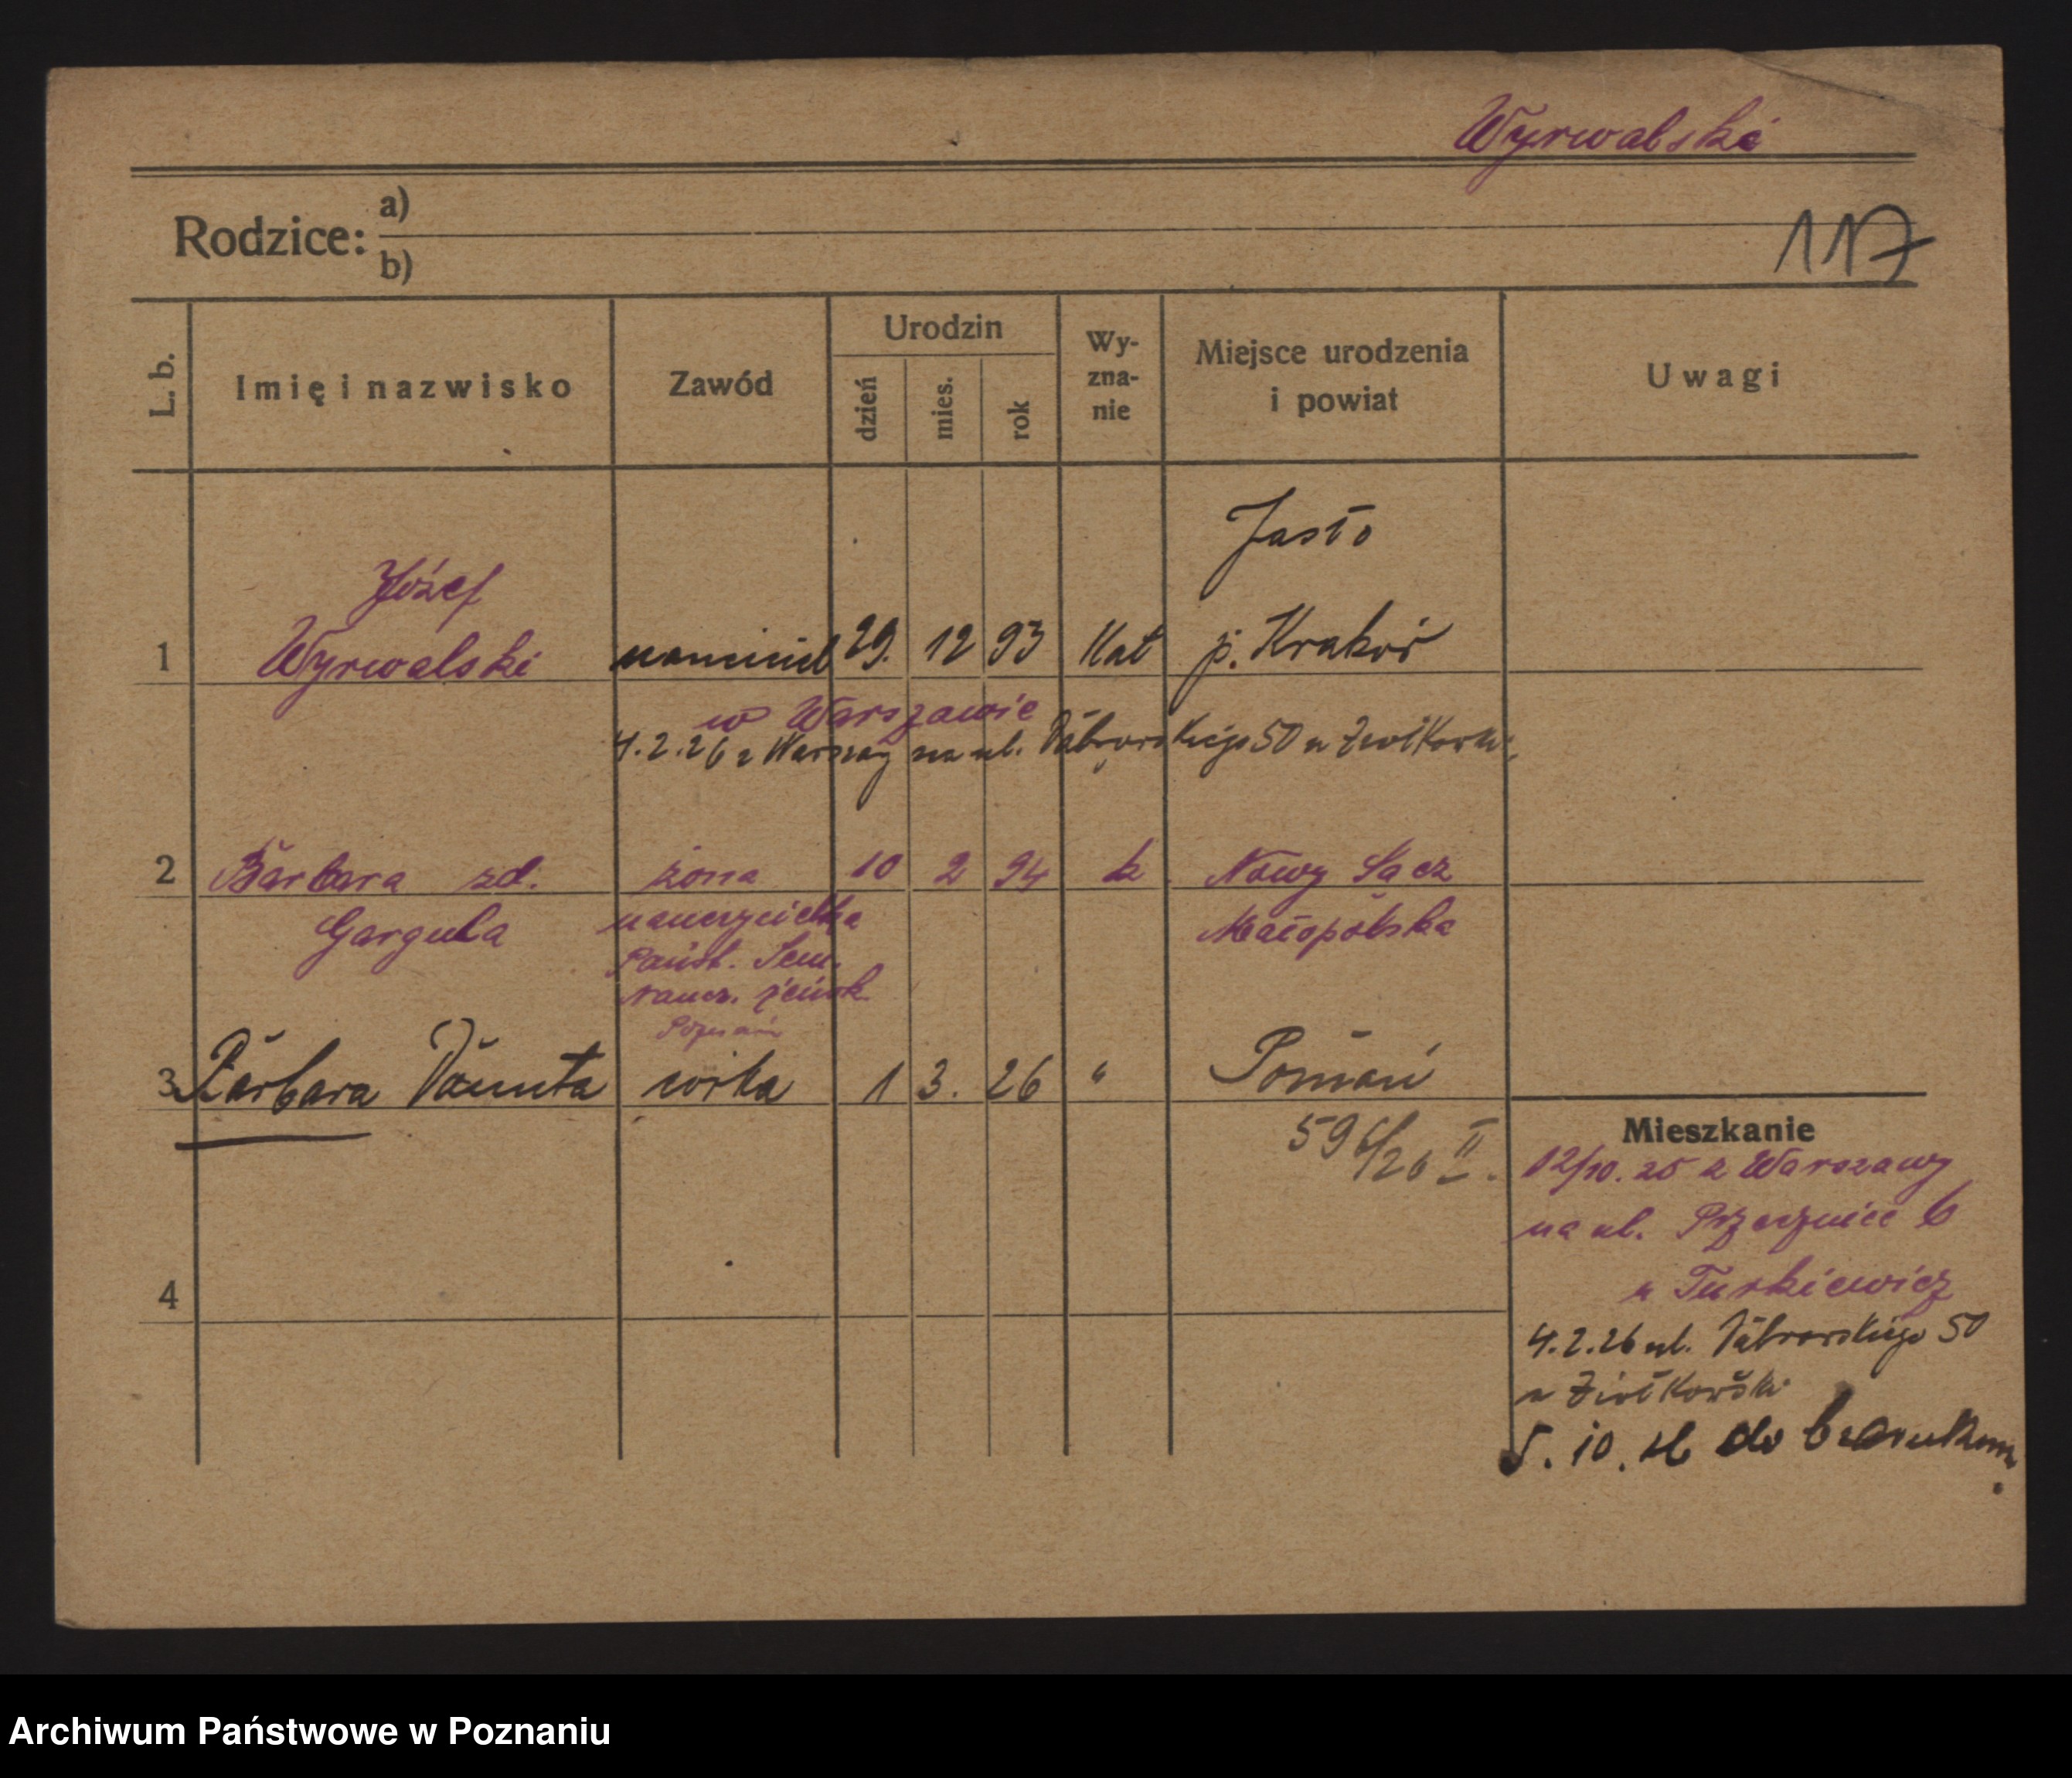 Wyrwalski
Rodzice: a)
b)
117
L. b.
Imię i nazwisko
Zawód
Urodzin
dzień
mies.
rok
Wy-
zna-
nie
Miejsce urodzenia
i powiat
Uwagi
Jasło
Józef
1 Wyrwalski 29. 12 93 Kat p. Kraków
w Warszawie
4.2.26 z Warszawy na ul. Dąbrowskiego 50 u Ziołkowski
2 Barbara zd. żona 10 2 94 k. Nowy Sącz
Gargula nauczycielka Małopolska
Państ. Sem.
Naucz. żeńsk.
Poznań
3 Barbara Danuta córka 1 3. 26 " Poznań
596/26 II.
Mieszkanie
12/10. 25 z Warszawy
na ul. Przecznice 6
u Turkiewicz
4.2.26 ul. Dąbrowskiego 50
u Ziołkowski
4
5. 10. 26 do
Archiwum Państwowe w Poznaniu